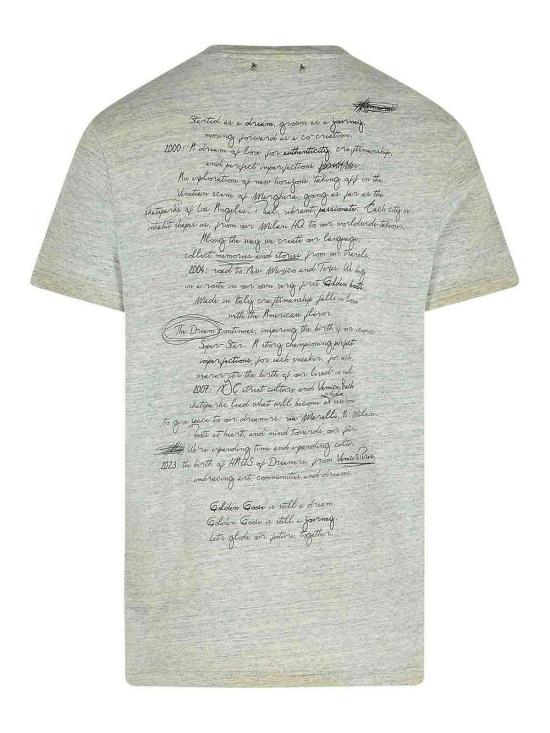 Started as a dream, grown as a journey
moving forward as a co-creation.
2000: A dream of love for authenticity, craftmanship,
and perfect imperfections
An exploration of new horizons, taking off in the
Venetian scene of Marghera, going as far as the
skateparks of Los Angeles. real, vibrant, passionate. Each city we
inhabit shapes us, from our Milan HQ to our worldwide
Along the way we create our language,
collect memories and stories from our travels.
2004: road to New Mexico and Texas. We big
in a route in our own very first Golden boots
Made in Italy craftmanship falls in love
with the American flavor.
The Dream continues, inspiring the birth of our iconic
Super-Star. A story championing perfect
imperfections for each sneaker, for each
wearer. It's the birth of our lived in
2007: street culture and Venice Beach
skateparks lead what will become
to give space to our dreamers: via Merelli, in Milan.
boots at heart, and mind towards our
We're expanding time and expanding culture
2023: the birth of HAUS of Dreamers, from
embracing art, communities and dreams.
Golden Goose is still a dream.
Golden Goose is still a journey.
Let's glide our future, together.